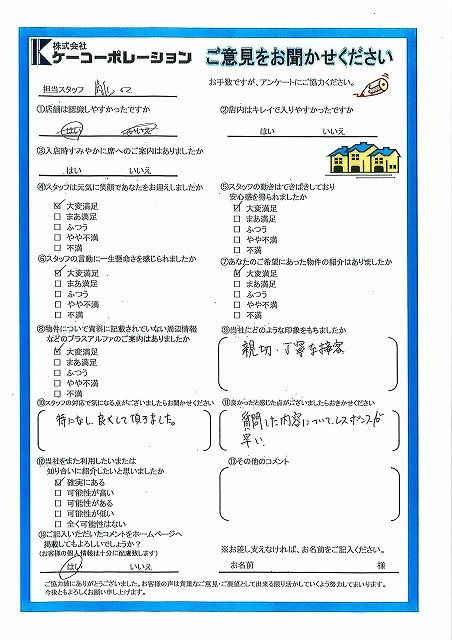 株式会社
ケーコーポレーション
ご意見をお聞かせください
お手数ですが、アンケートにご協力ください。
担当スタッフ
①店舗は認識しやすかったですか
はい いいえ
②店内はキレイで入りやすかったですか
はい いいえ
③入店時すみやかに席へのご案内はありましたか
はい いいえ
④スタッフは元気に笑顔であなたをお迎えしましたか
☑ 大変満足
□ まあ満足
□ ふつう
□ やや不満
□ 不満
⑤スタッフの動きはてきぱきしており
安心感を得られましたか
☑ 大変満足
□ まあ満足
□ ふつう
□ やや不満
□ 不満
⑥スタッフの言動に一生懸命さを感じられましたか
☑ 大変満足
□ まあ満足
□ ふつう
□ やや不満
□ 不満
⑦あなたのご希望にあった物件の紹介はありましたか
☑ 大変満足
□ まあ満足
□ ふつう
□ やや不満
□ 不満
⑧物件について資料に記載されていない周辺情報
などのプラスアルファのご案内はありましたか
☑ 大変満足
□ まあ満足
□ ふつう
□ やや不満
□ 不満
⑨当社にどのような印象をもちましたか
親切・丁寧な接客
⑩スタッフの対応で気になる点がございましたらお聞かせください
特になし 良くして頂きました。
⑪良かったと感じた点がございましたらおきかせください
質問した内容について、レスポンスが
早い
⑫当社をまた利用したいまたは
知り合いに紹介したいと思いましたか
☑ 確実にある
□ 可能性が高い
□ 可能性がある
□ 可能性が低い
□ 全く可能性はない
⑬その他のコメント
⑭ご記入いただいたコメントをホームページへ
掲載してもよろしいでしょうか?
(お客様の個人情報は十分に配慮致します)
はい いいえ
※お差し支えなければ、お名前をご記入ください。
お名前 様
ご協力誠にありがとうございました。お客様の声は貴重なご意見・ご要望として出来る限り活かしていくよう努力してまいります。
今後ともよろしくお願い申し上げます。